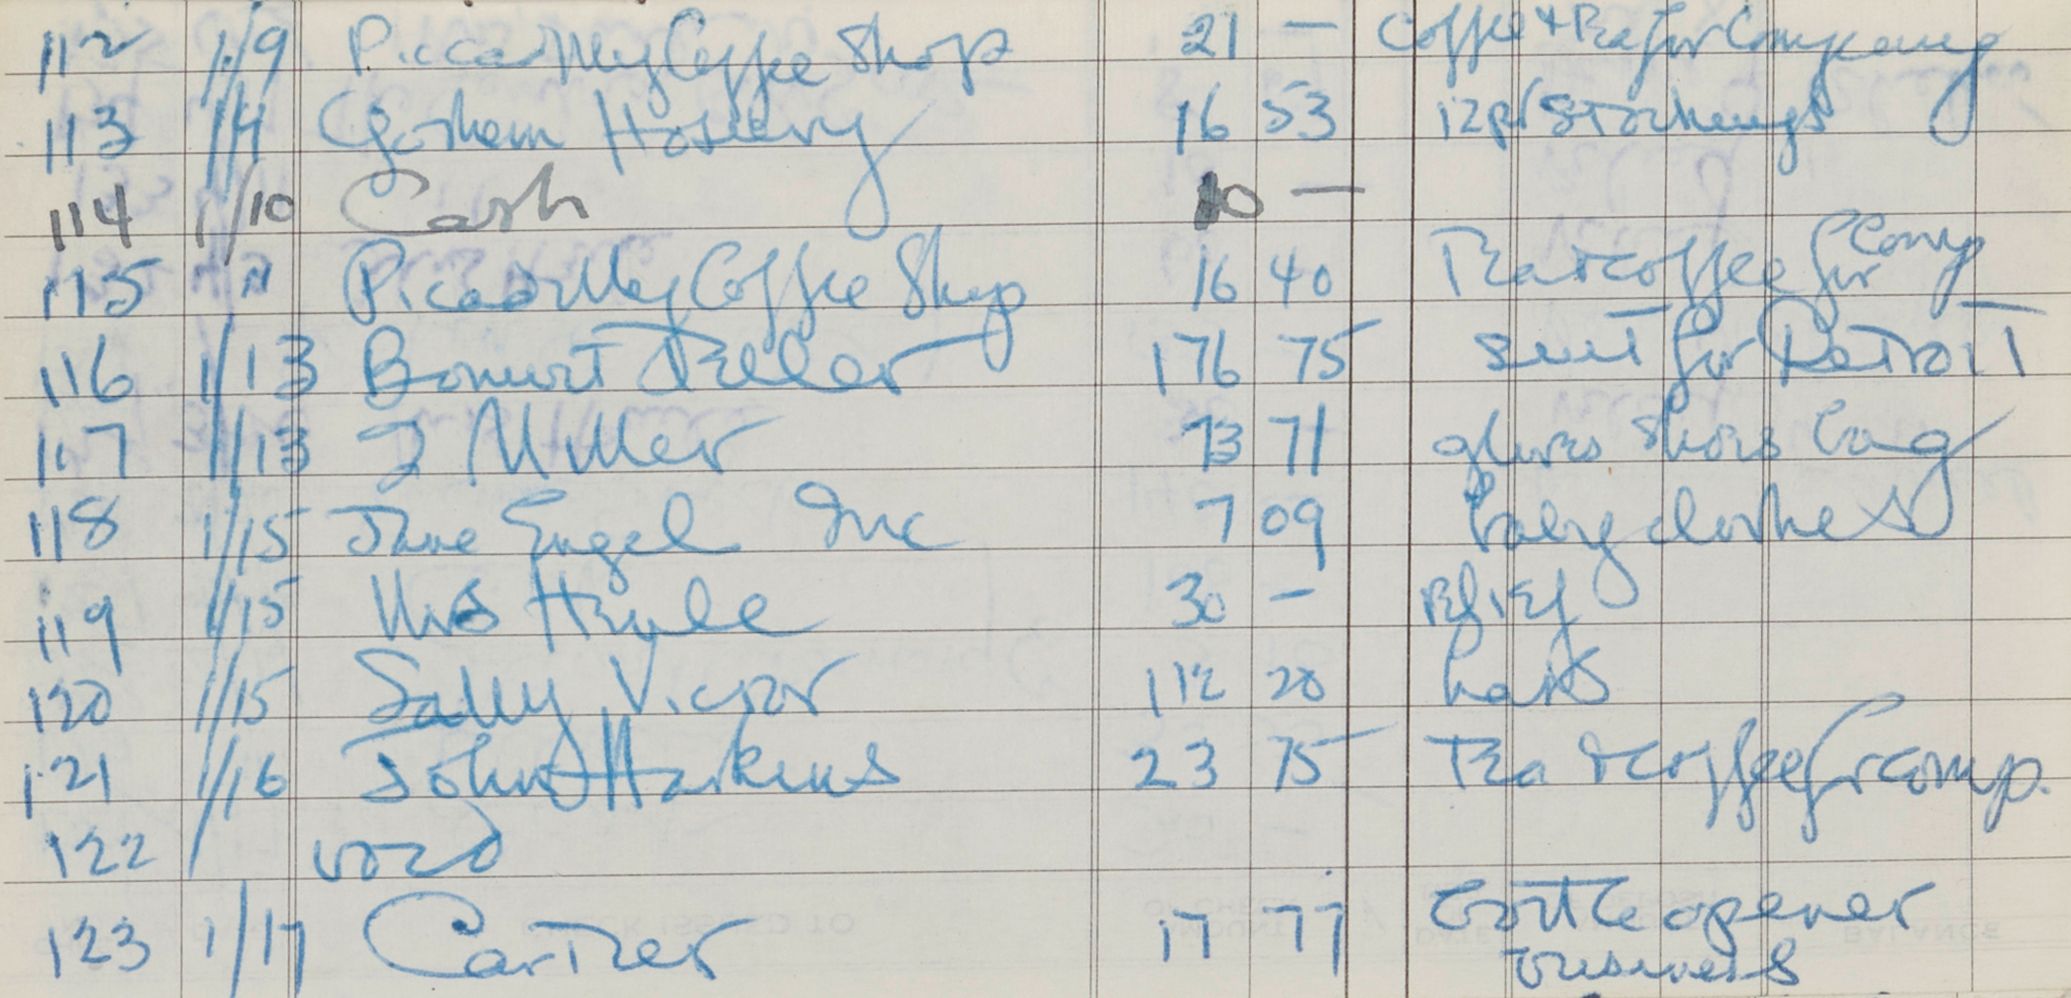 112 1/9 Piccadilly Coffee Shop 21 — Coffee + Tea for Company
113 1/9 Gotham Hosiery 16 53 12 pr Stockings
114 1/10 Cash 10 —
115 " Picadilly Coffee Shop 16 40 Tea + coffee for Comp
116 1/13 Bonwit Teller 176 75 suit for Detroit
117 1/13 I Miller 73 71 gloves shoes bag
118 1/15 Jane Engel Inc 7 09 baby clothes
119 1/15 Mrs 30 — relief
120 1/15 Sally Victor 112 20 hats
121 1/16 John Harkins 23 75 Tea & coffee for comp.
122 / void
123 1/17 Cartier 17 77 bottle opener
business